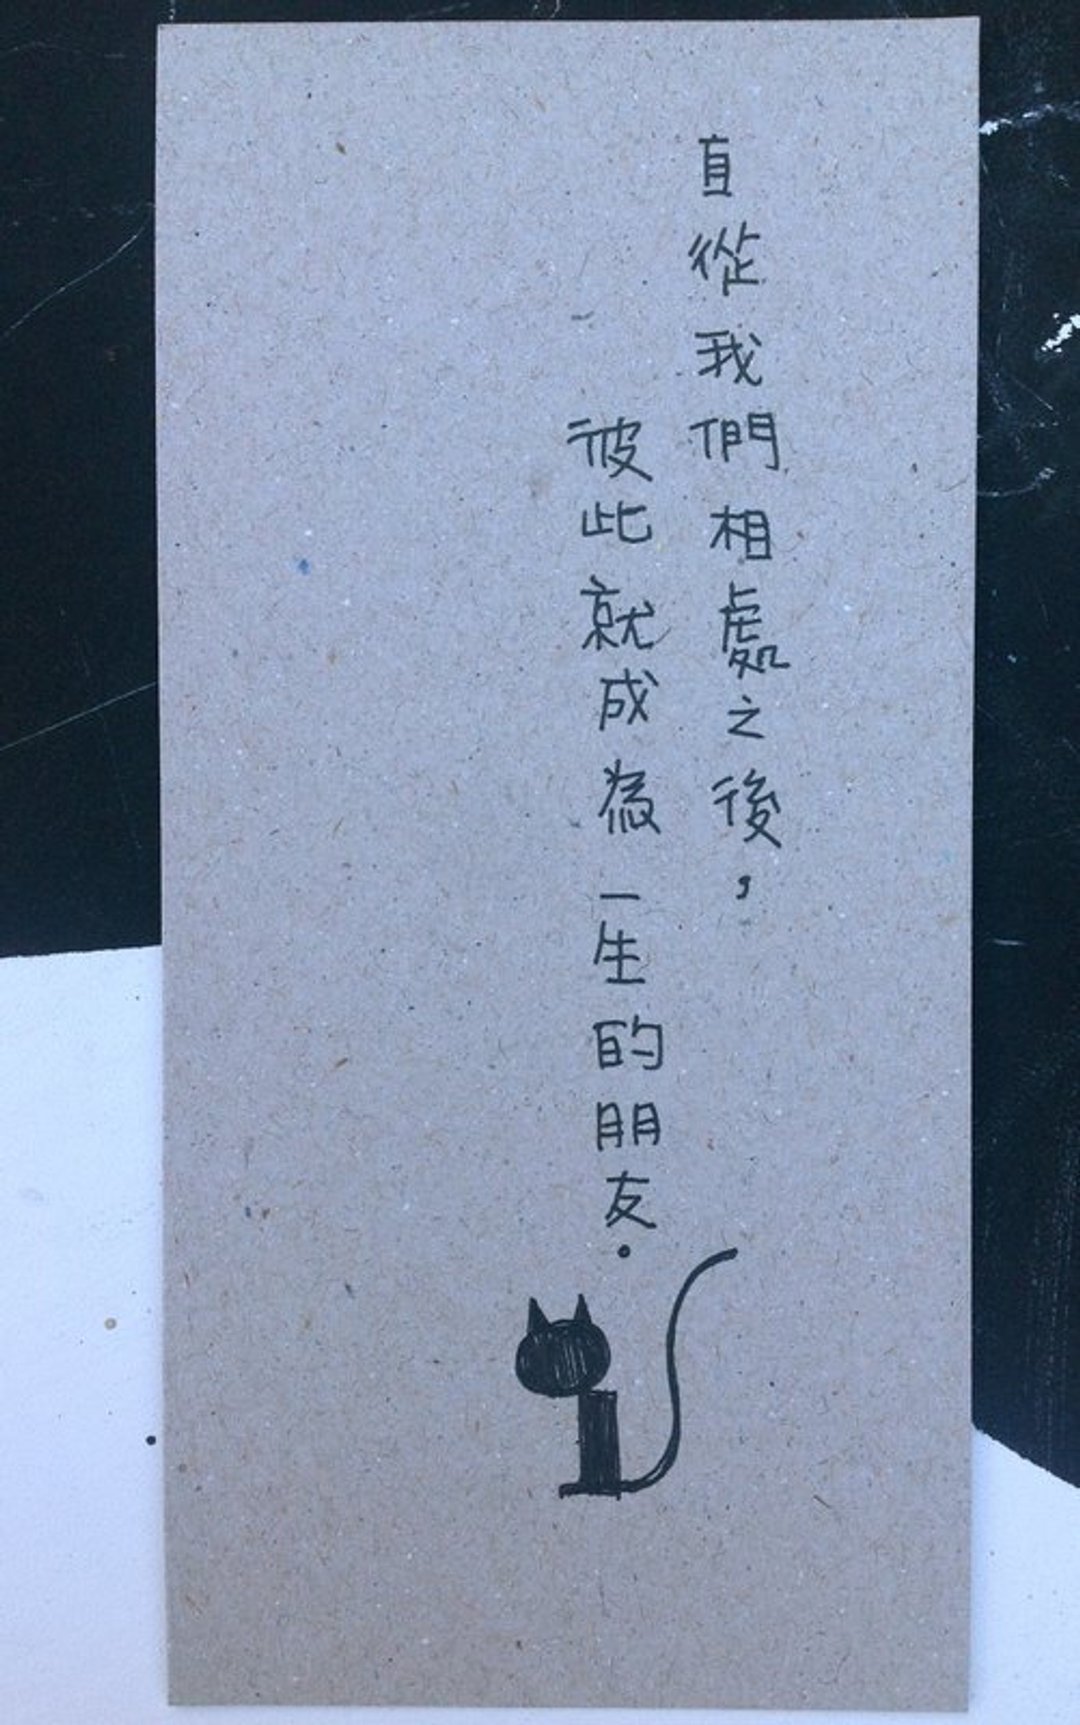 直從我們相處之後，
彼此就成為一生的朋友．